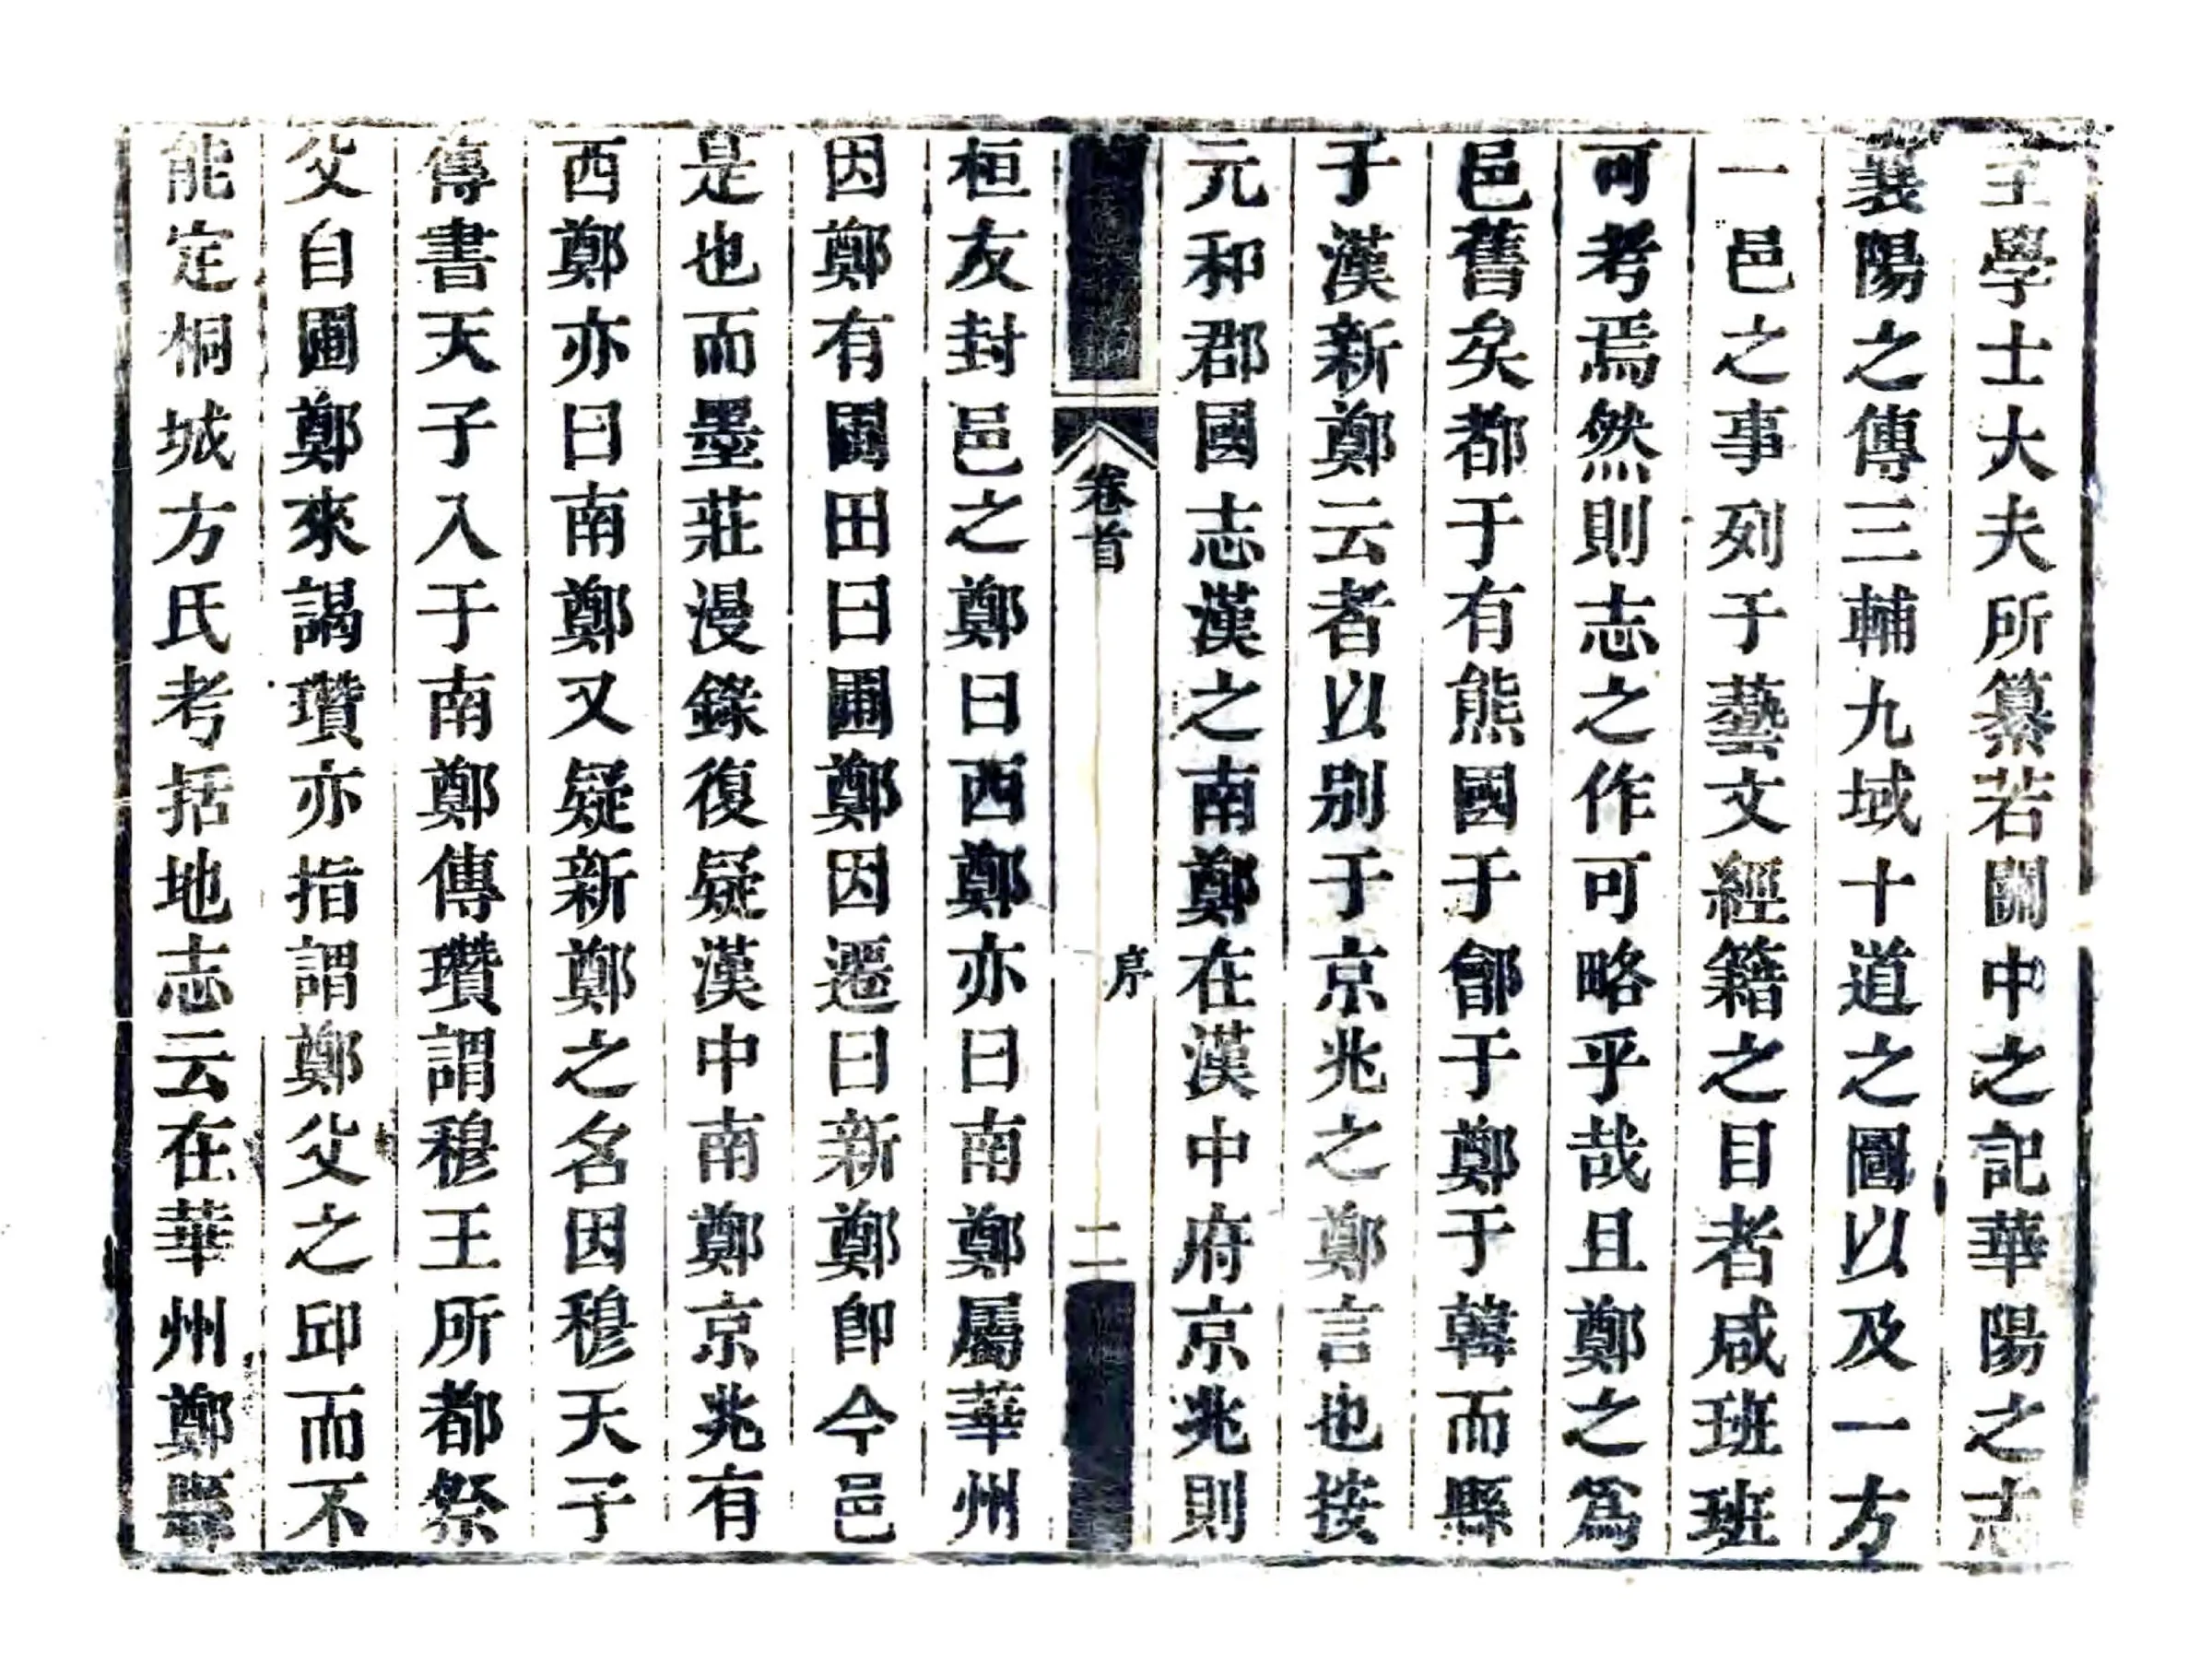 王學士大夫所纂若關中之記華陽之志
襄陽之傳三輔九域十道之圖以及一方
一邑之事列于藝文經籍之目者咸班班
可考焉然則志之作可略乎哉且鄭之爲
邑舊矣都于有熊國于鄶于鄭于韓而縣
于漢新鄭云者以别于京兆之鄭言也按
元和郡國志漢之南鄭在漢中府京兆則
卷首
序
二
桓友封邑之鄭曰西鄭亦曰南鄭屬華州
因鄭有圃田曰圃鄭因遷曰新鄭卽今邑
是也而墨莊漫錄復疑漢中南鄭京兆有
西鄭亦曰南鄭又疑新鄭之名因穆天子
傳書天子入于南鄭傳瓚謂穆王所都祭
父自圃鄭來謁瓚亦指謂鄭父之邱而不
能定桐城方氏考括地志云在華州鄭縣